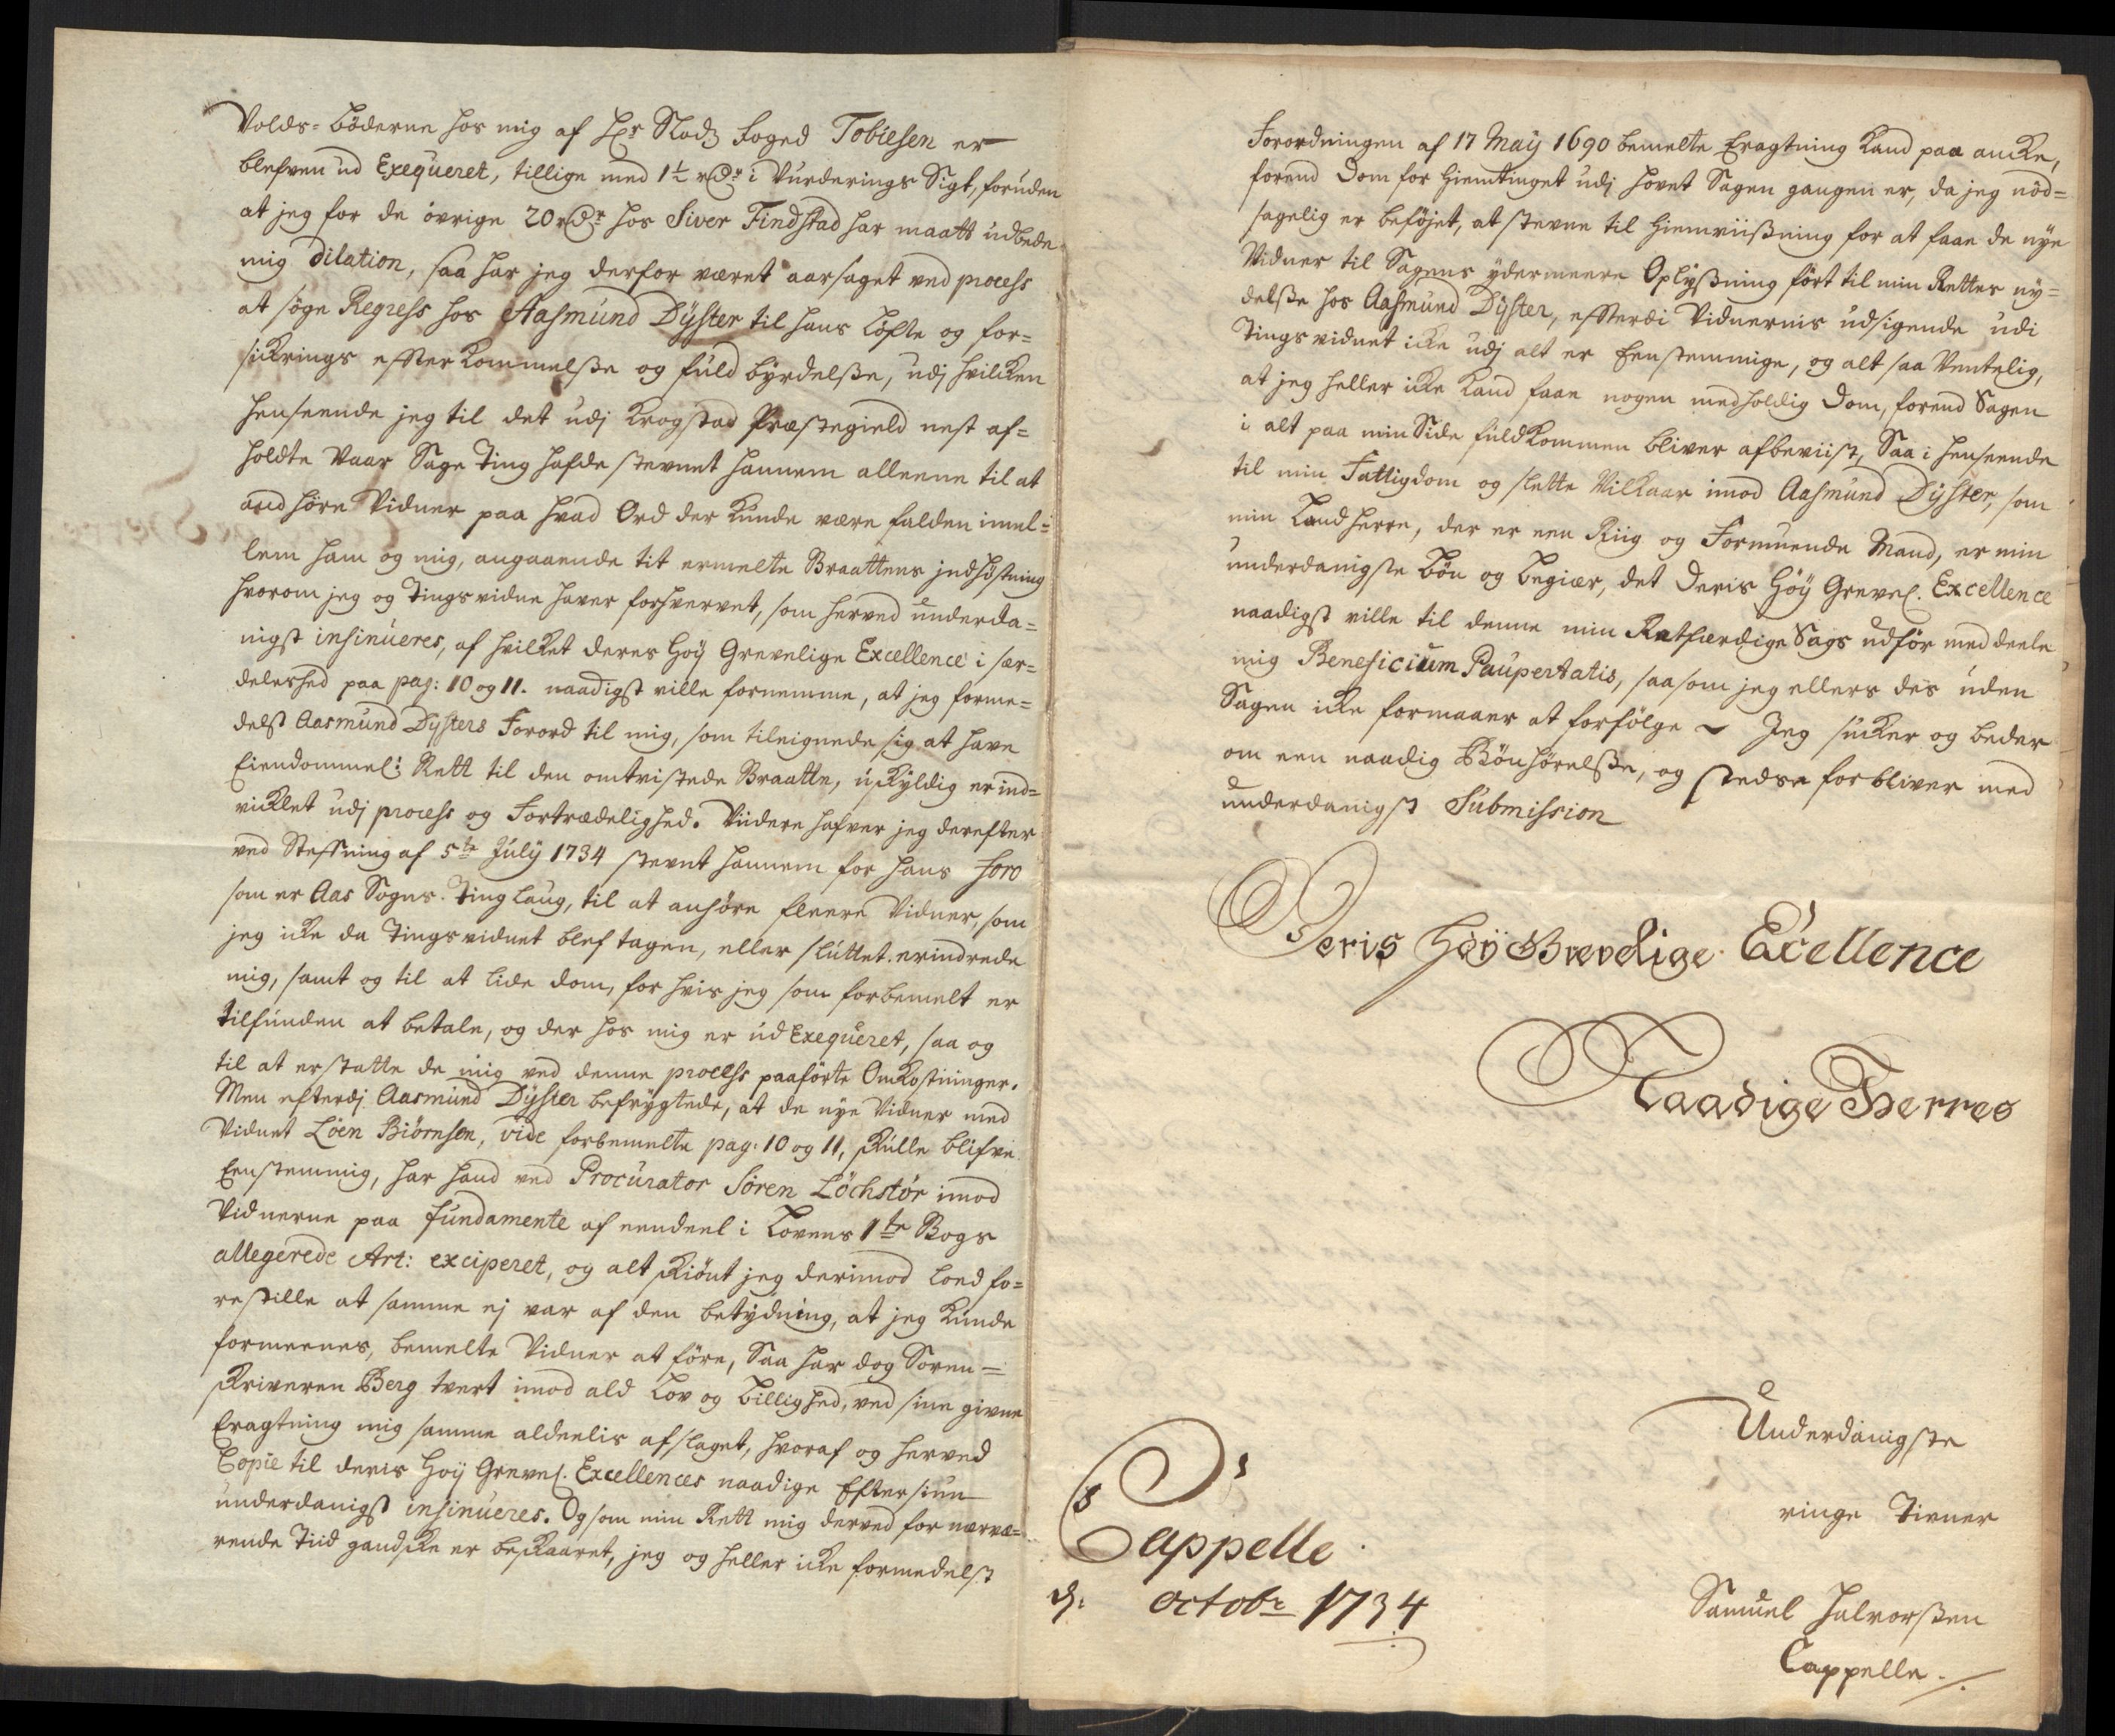 Volds-bøderne hos mig af Hr Slodz foged Tobiesen er
blefven ud Exeqveret, tillige med 1½ rdr i Vurderings Sigt, foruden
at jeg for de övrige 20 rdr hos Siver Findstad har maatt udbede
mig dilation, saa har jeg derfor været aarsaget ved process
at søge Regress hos Aasmund Dyster til hans Løfte og for=
sickrings efterkommelsse og fuldbyrdelsse, udj hvilcken
henseende jeg til det udj Krogstad Præstegield nest af=
holdte Vaar Sage Ting hafde stevnet hannem alleene til at
andhöre Vidner paa hvad Ord der kunde være falden imel=
lem ham og mig, angaaende tit ermelte Braattens jndhøstning
hvorom jeg og Tingsvidne haver forhvervet, som herved underda=
nigst insinueres, af hvilket deres Höy Grevelige Excellence i sær=
deleshed paa pag: 10 og 11. naadigst ville fornemme, at jeg forme=
delst Aasmund Dysters Forord til mig, som tileignede sig at have
Eiendommel: Rett til den omtvistede Braatte, uskyldig er ind=
vicklet udj process og Fortrædelighed. Viidere hafver jeg derefter
ved Steffning af 5te July 1734 stevnt hannem for hans foro
som er Aas Sogns Tinglaug, til at anhøre fleere Vidner, som
jeg icke da Tingsvidnet blef tagen, eller sluttet erindrede
mig, samt og til at lide dom, for hvis jeg som forbemelt er
tilfunden at betale, og der hos mig er ud Exeqveret, saa og
til at erstatte de mig ved denne process paaførte Omkostninger.
Men efterdj Aasmund Dyster befrygtede, at de nye Vidner med
Vidnet Löen Biørnsen, vide forbemelte pag: 10 og 11, skulle blifve
Eenstemmig, har hand ved Procurator Sören Löchstör imod
Vidnerne paa fundamente af eendeel i Lovens 1te Bogs
allegerede Art: exciperet, og alt skiönt jeg derimod loed fo=
restille at samme ej var af den betydning, at jeg kunde
formeenes, bemelte Vidner at føre, Saa har dog Soren=
skriveren Berg tvert imod ald Lov og billighed, ved sine givne
Eragtning mig samme aldeelis afslaget, hvoraf og herved
Copie til deris Höy Grevel. Excellences naadige Eftersiun
underdanigst insinueres. Og som min Rett mig derved for nærvæ=
rende Tiid gandske er beskaaret, jeg og heller icke formedelst
Forordningen af 17 May 1690 bemelte Eragtning kand paa ancke,
forend Dom for hiemtinget udj hovet Sagen gangen er, da jeg nöd=
sagelig er beføjet, at stevne til hiemviissning for at faae de nye
Vidner til Sagens ydermeere Oplyssning ført til min Rettes ny=
delsse hos Aasmund Dyster, efterdi Vidnernis udsigende udi
Tingsvidnet icke udj alt er Eenstemmige, og altsaa Ventelig,
at jeg heller icke kand faae nogen medholdig Dom, forend Sagen
i alt paa min Side fuldkommen bliver afbeviist, Saa i henseende
til min Fattigdom og slette Vilkaar imod Aasmund Dyster, som
min Landherre, der er een Riig og Formuende Mand, er min
underdanigste bøn og begiær, det Deris Höy Grevel. Excellence
naadigst ville til denne min Retfærdige Sags udför meddeele
mig Beneficium Paupertatis, saasom jeg ellers des uden
Sagen icke formaaer at forfölge ~ Jeg sucker og beder
om een naadig Bönhörelsse, og stedse forbliver med
underdanigst Submission
Deris Höy Grevelige Excellence
Naadige Herres
Underdanigste
ringe Tiener
Cappelle
d: octobr 1734
Samuel Halvorssen
Cappelle.